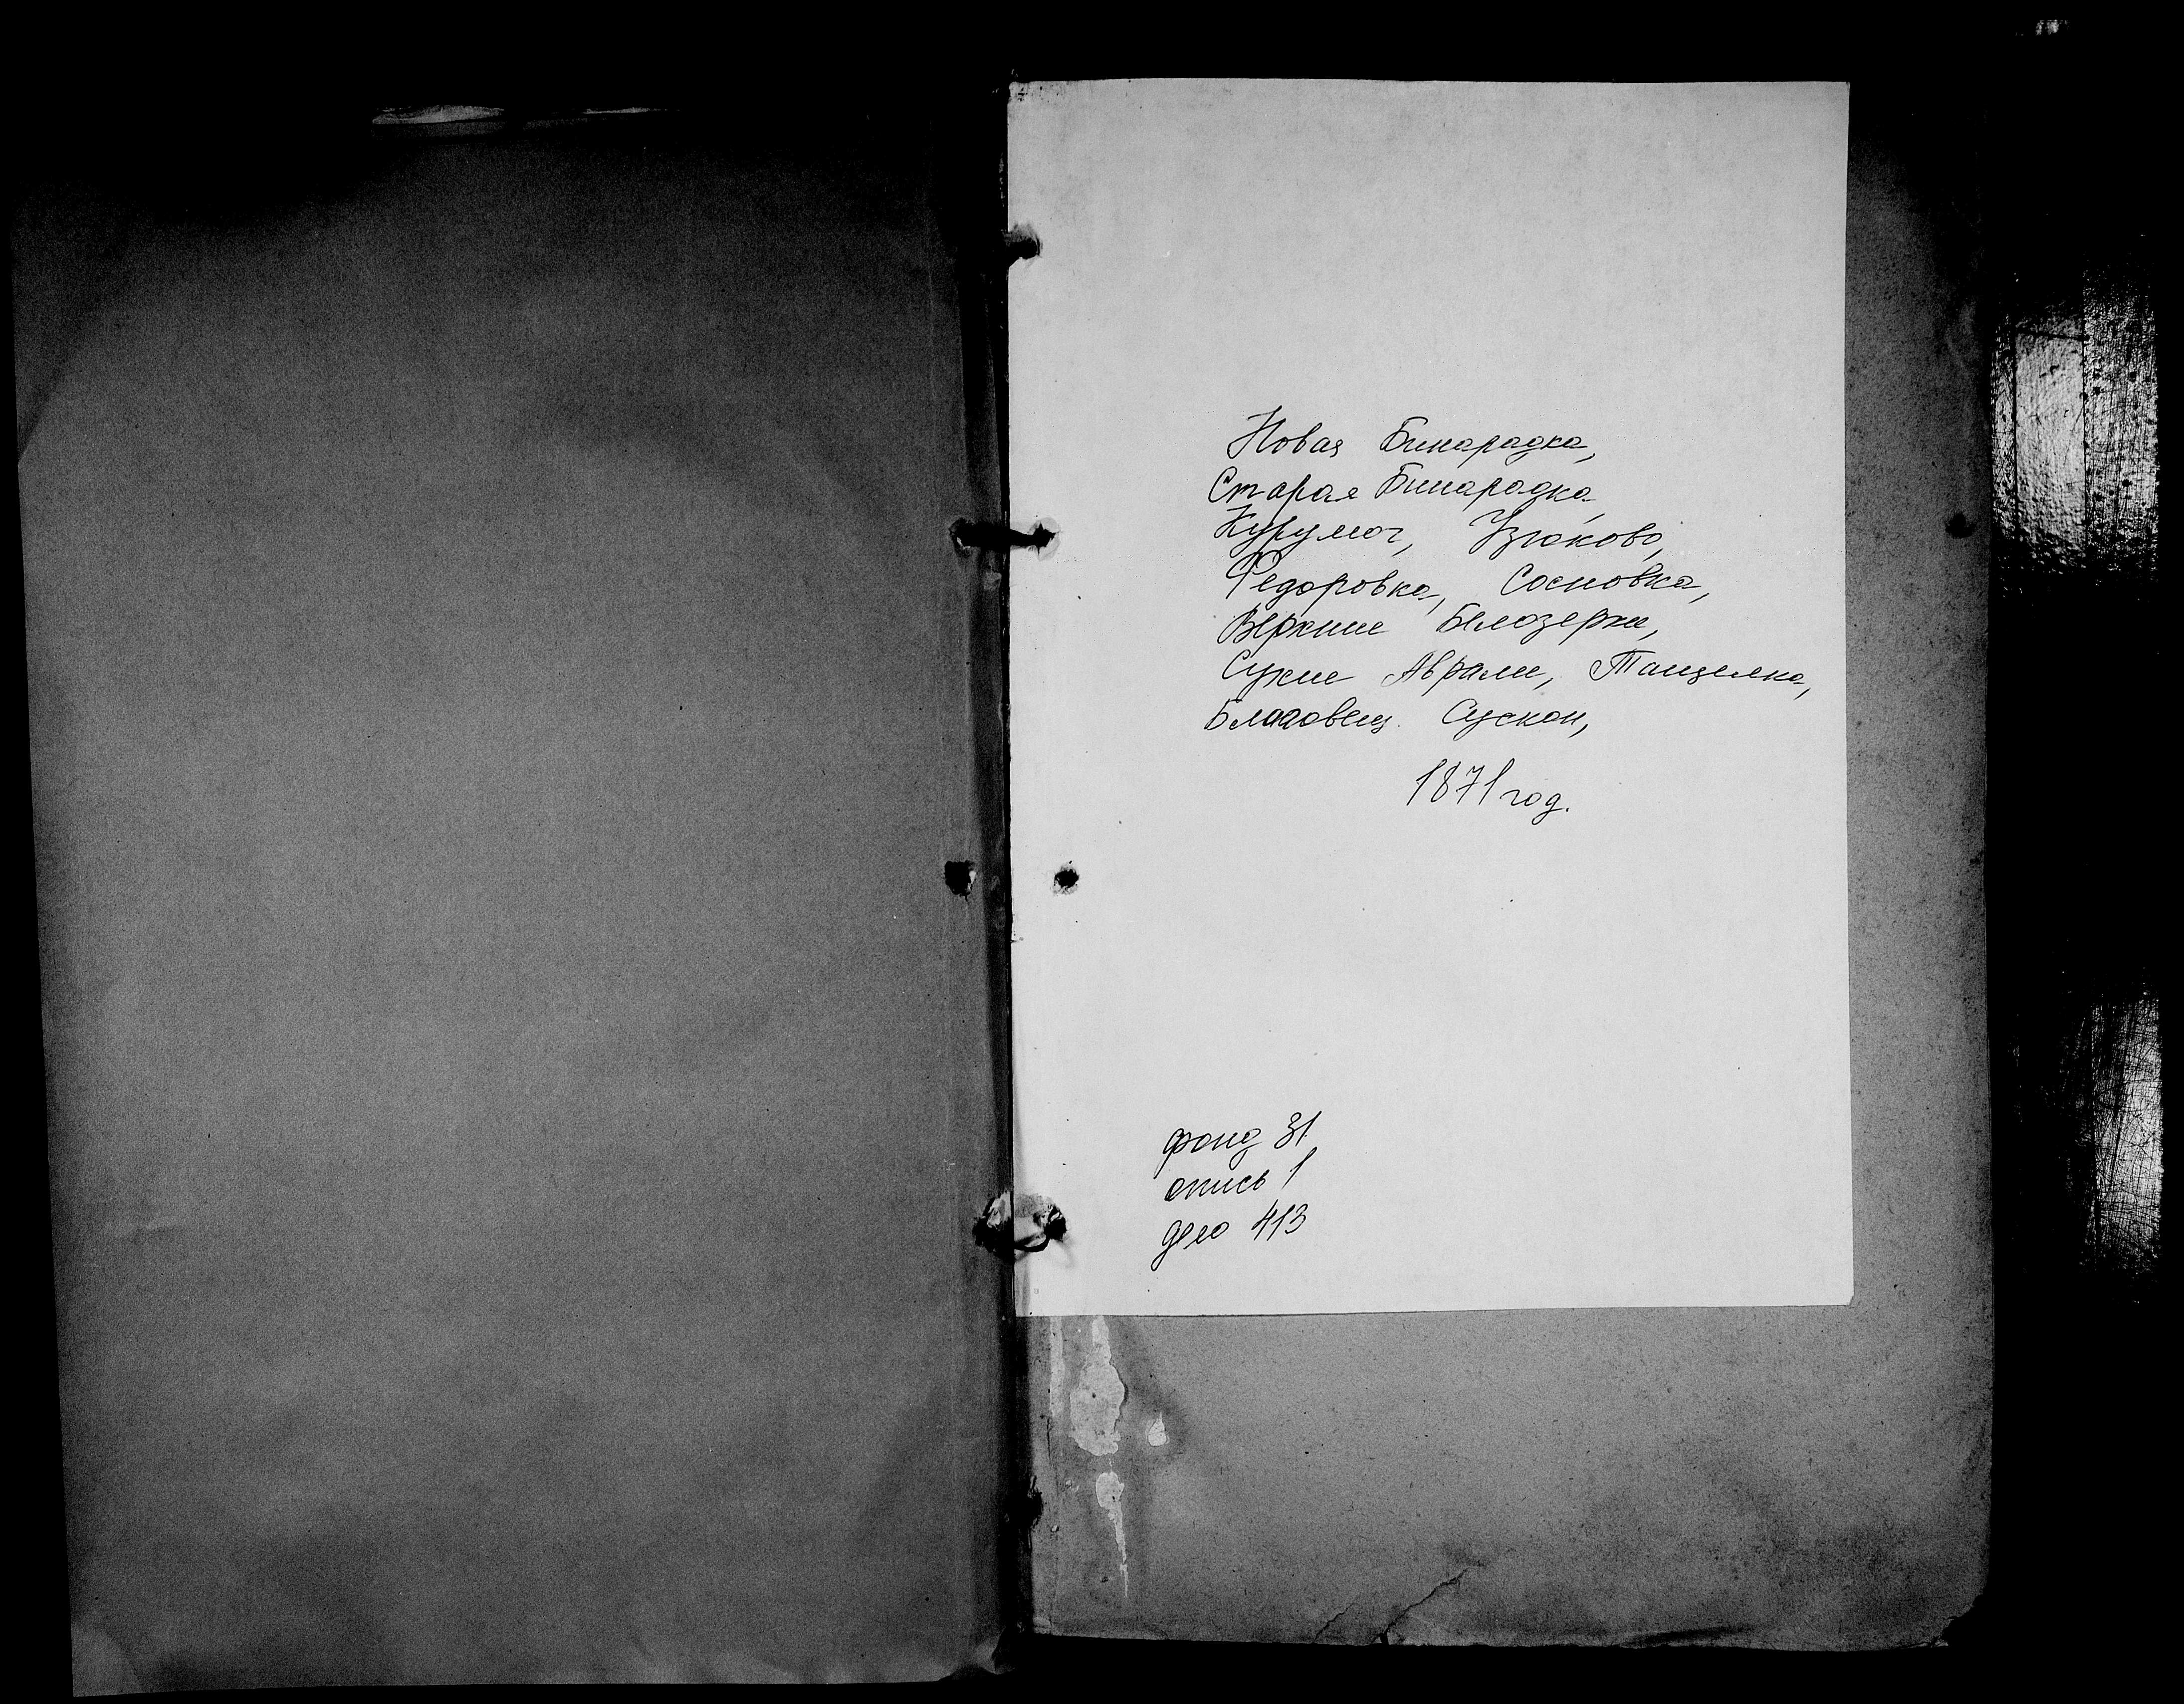 Новая Бинарадка,
Старая Бинарадка,
Курумоч, Узюково,
Федоровка, Сосновка,
Верхние Белозерки,
Сухие Аврали, Танцелка,
Благовещ. Сускан,
1871 год.
фонд 31
опись 1
дело 413